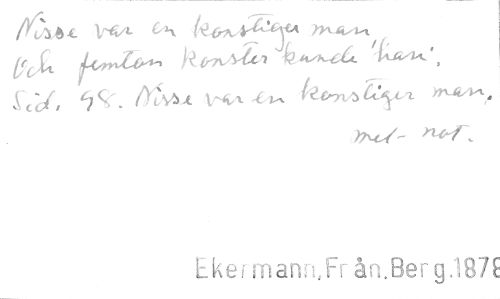 Nisse var en konstiger man
Och femton konster kunde han.
Sid. 98. Nisse var en konstiger man.
mel- not.
Ekermann, Från, Berg. 1878